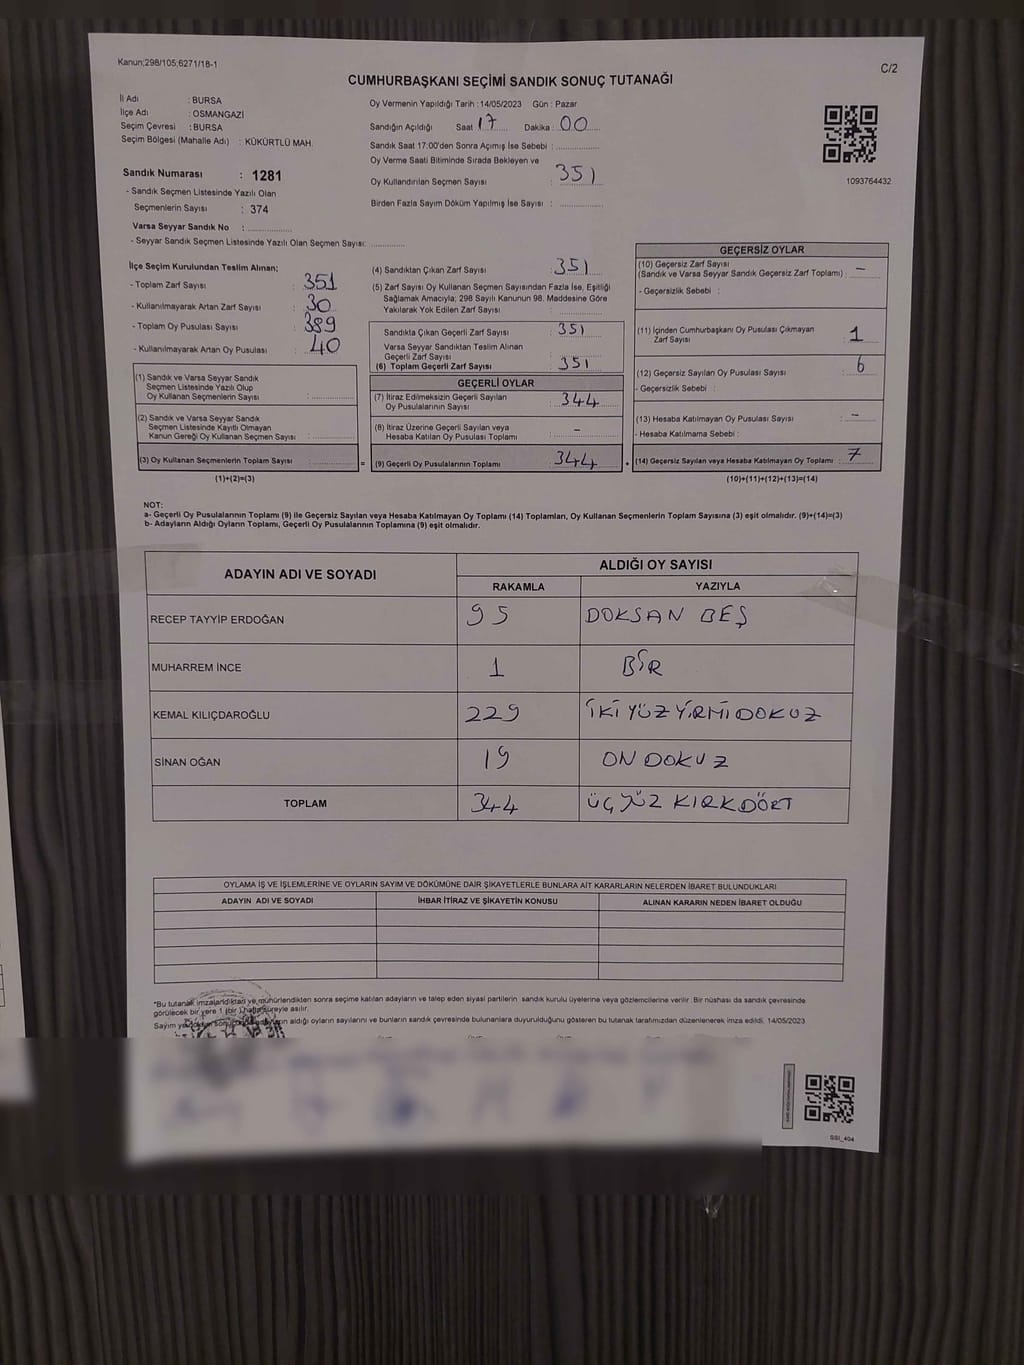 Kanun;298/105;6271/18-1
C/2
CUMHURBAŞKANI SEÇİMİ SANDIK SONUÇ TUTANAĞI
İl Adı : BURSA
İlçe Adı : OSMANGAZİ
Seçim Çevresi : BURSA
Seçim Bölgesi (Mahalle Adı) : KÜKÜRTLÜ MAH.
Sandık Numarası : 1281
- Sandık Seçmen Listesinde Yazılı Olan
Seçmenlerin Sayısı : 374
Varsa Seyyar Sandık No :
- Seyyar Sandık Seçmen Listesinde Yazılı Olan Seçmen Sayısı:
Oy Vermenin Yapıldığı Tarih :14/05/2023 Gün : Pazar
Sandığın Açıldığı Saat 17 Dakika : 00
Sandık Saat 17:00'den Sonra Açımış İse Sebebi :
Oy Verme Saati Bitiminde Sırada Bekleyen ve
Oy Kullandırılan Seçmen Sayısı : 351
Birden Fazla Sayım Döküm Yapılmış İse Sayısı :
1093764432
İlçe Seçim Kurulundan Teslim Alınan;
- Toplam Zarf Sayısı : 351
- Kullanılmayarak Artan Zarf Sayısı : 30
- Toplam Oy Pusulası Sayısı : 389
- Kullanılmayarak Artan Oy Pusulası : 40
(1) Sandık ve Varsa Seyyar Sandık
Seçmen Listesinde Yazılı Olup
Oy Kullanan Seçmenlerin Sayısı :
(2) Sandık ve Varsa Seyyar Sandık
Seçmen Listesinde Kayıtlı Olmayan
Kanun Gereği Oy Kullanan Seçmen Sayısı :
(3) Oy Kullanan Seçmenlerin Toplam Sayısı :
(1)+(2)=(3)
=
(4) Sandıktan Çıkan Zarf Sayısı : 351
(5) Zarf Sayısı Oy Kullanan Seçmen Sayısından Fazla İse, Eşitliği
Sağlamak Amacıyla; 298 Sayılı Kanunun 98. Maddesine Göre
Yakılarak Yok Edilen Zarf Sayısı :
Sandıkta Çıkan Geçerli Zarf Sayısı : 351
Varsa Seyyar Sandıktan Teslim Alınan
Geçerli Zarf Sayısı :
(6) Toplam Geçerli Zarf Sayısı : 351
GEÇERLİ OYLAR
(7) İtiraz Edilmeksizin Geçerli Sayılan
Oy Pusulalarının Sayısı : 344
(8) İtiraz Üzerine Geçerli Sayılan veya
Hesaba Katılan Oy Pusulası Toplamı : -
(9) Geçerli Oy Pusulalarının Toplamı : 344
+
GEÇERSİZ OYLAR
(10) Geçersiz Zarf Sayısı
(Sandık ve Varsa Seyyar Sandık Geçersiz Zarf Toplamı) : -
- Geçersizlik Sebebi :
(11) İçinden Cumhurbaşkanı Oy Pusulası Çıkmayan
Zarf Sayısı : 1
(12) Geçersiz Sayılan Oy Pusulası Sayısı : 6
- Geçersizlik Sebebi :
(13) Hesaba Katılmayan Oy Pusulası Sayısı : -
- Hesaba Katılmama Sebebi :
(14) Geçersiz Sayılan veya Hesaba Katılmayan Oy Toplamı : 7
(10)+(11)+(12)+(13)=(14)
NOT:
a- Geçerli Oy Pusulalarının Toplamı (9) ile Geçersiz Sayılan veya Hesaba Katılmayan Oy Toplamı (14) Toplamları, Oy Kullanan Seçmenlerin Toplam Sayısına (3) eşit olmalıdır. (9)+(14)=(3)
b- Adayların Aldığı Oyların Toplamı, Geçerli Oy Pusulalarının Toplamına (9) eşit olmalıdır.
ADAYIN ADI VE SOYADI
ALDIĞI OY SAYISI
RAKAMLA YAZIYLA
RECEP TAYYİP ERDOĞAN 95 DOKSAN BEŞ
MUHARREM İNCE 1 BİR
KEMAL KILIÇDAROĞLU 229 İKİ YÜZ YİRMİ DOKUZ
SİNAN OĞAN 19 ON DOKUZ
TOPLAM 344 ÜÇ YÜZ KIRK DÖRT
OYLAMA İŞ VE İŞLEMLERİNE VE OYLARIN SAYIM VE DÖKÜMÜNE DAİR ŞİKAYETLERLE BUNLARA AİT KARARLARIN NELERDEN İBARET BULUNDUKLARI
ADAYIN ADI VE SOYADI İHBAR İTİRAZ VE ŞİKAYETİN KONUSU ALINAN KARARIN NEDEN İBARET OLDUĞU
*Bu tutanak imzalandıktan ve mühürlendikten sonra seçime katılan adayların ve talep eden siyasi partilerin sandık kurulu üyelerine veya gözlemcilerine verilir. Bir nüshası da sandık çevresinde
görülecek bir yere 1 (bir) hafta süreyle asılır.
aldığı oyların sayılarını ve bunların sandık çevresinde bulunanlara duyurulduğunu gösteren bu tutanak tarafımızdan düzenlenerek imza edildi. 14/05/2023
SSI_404